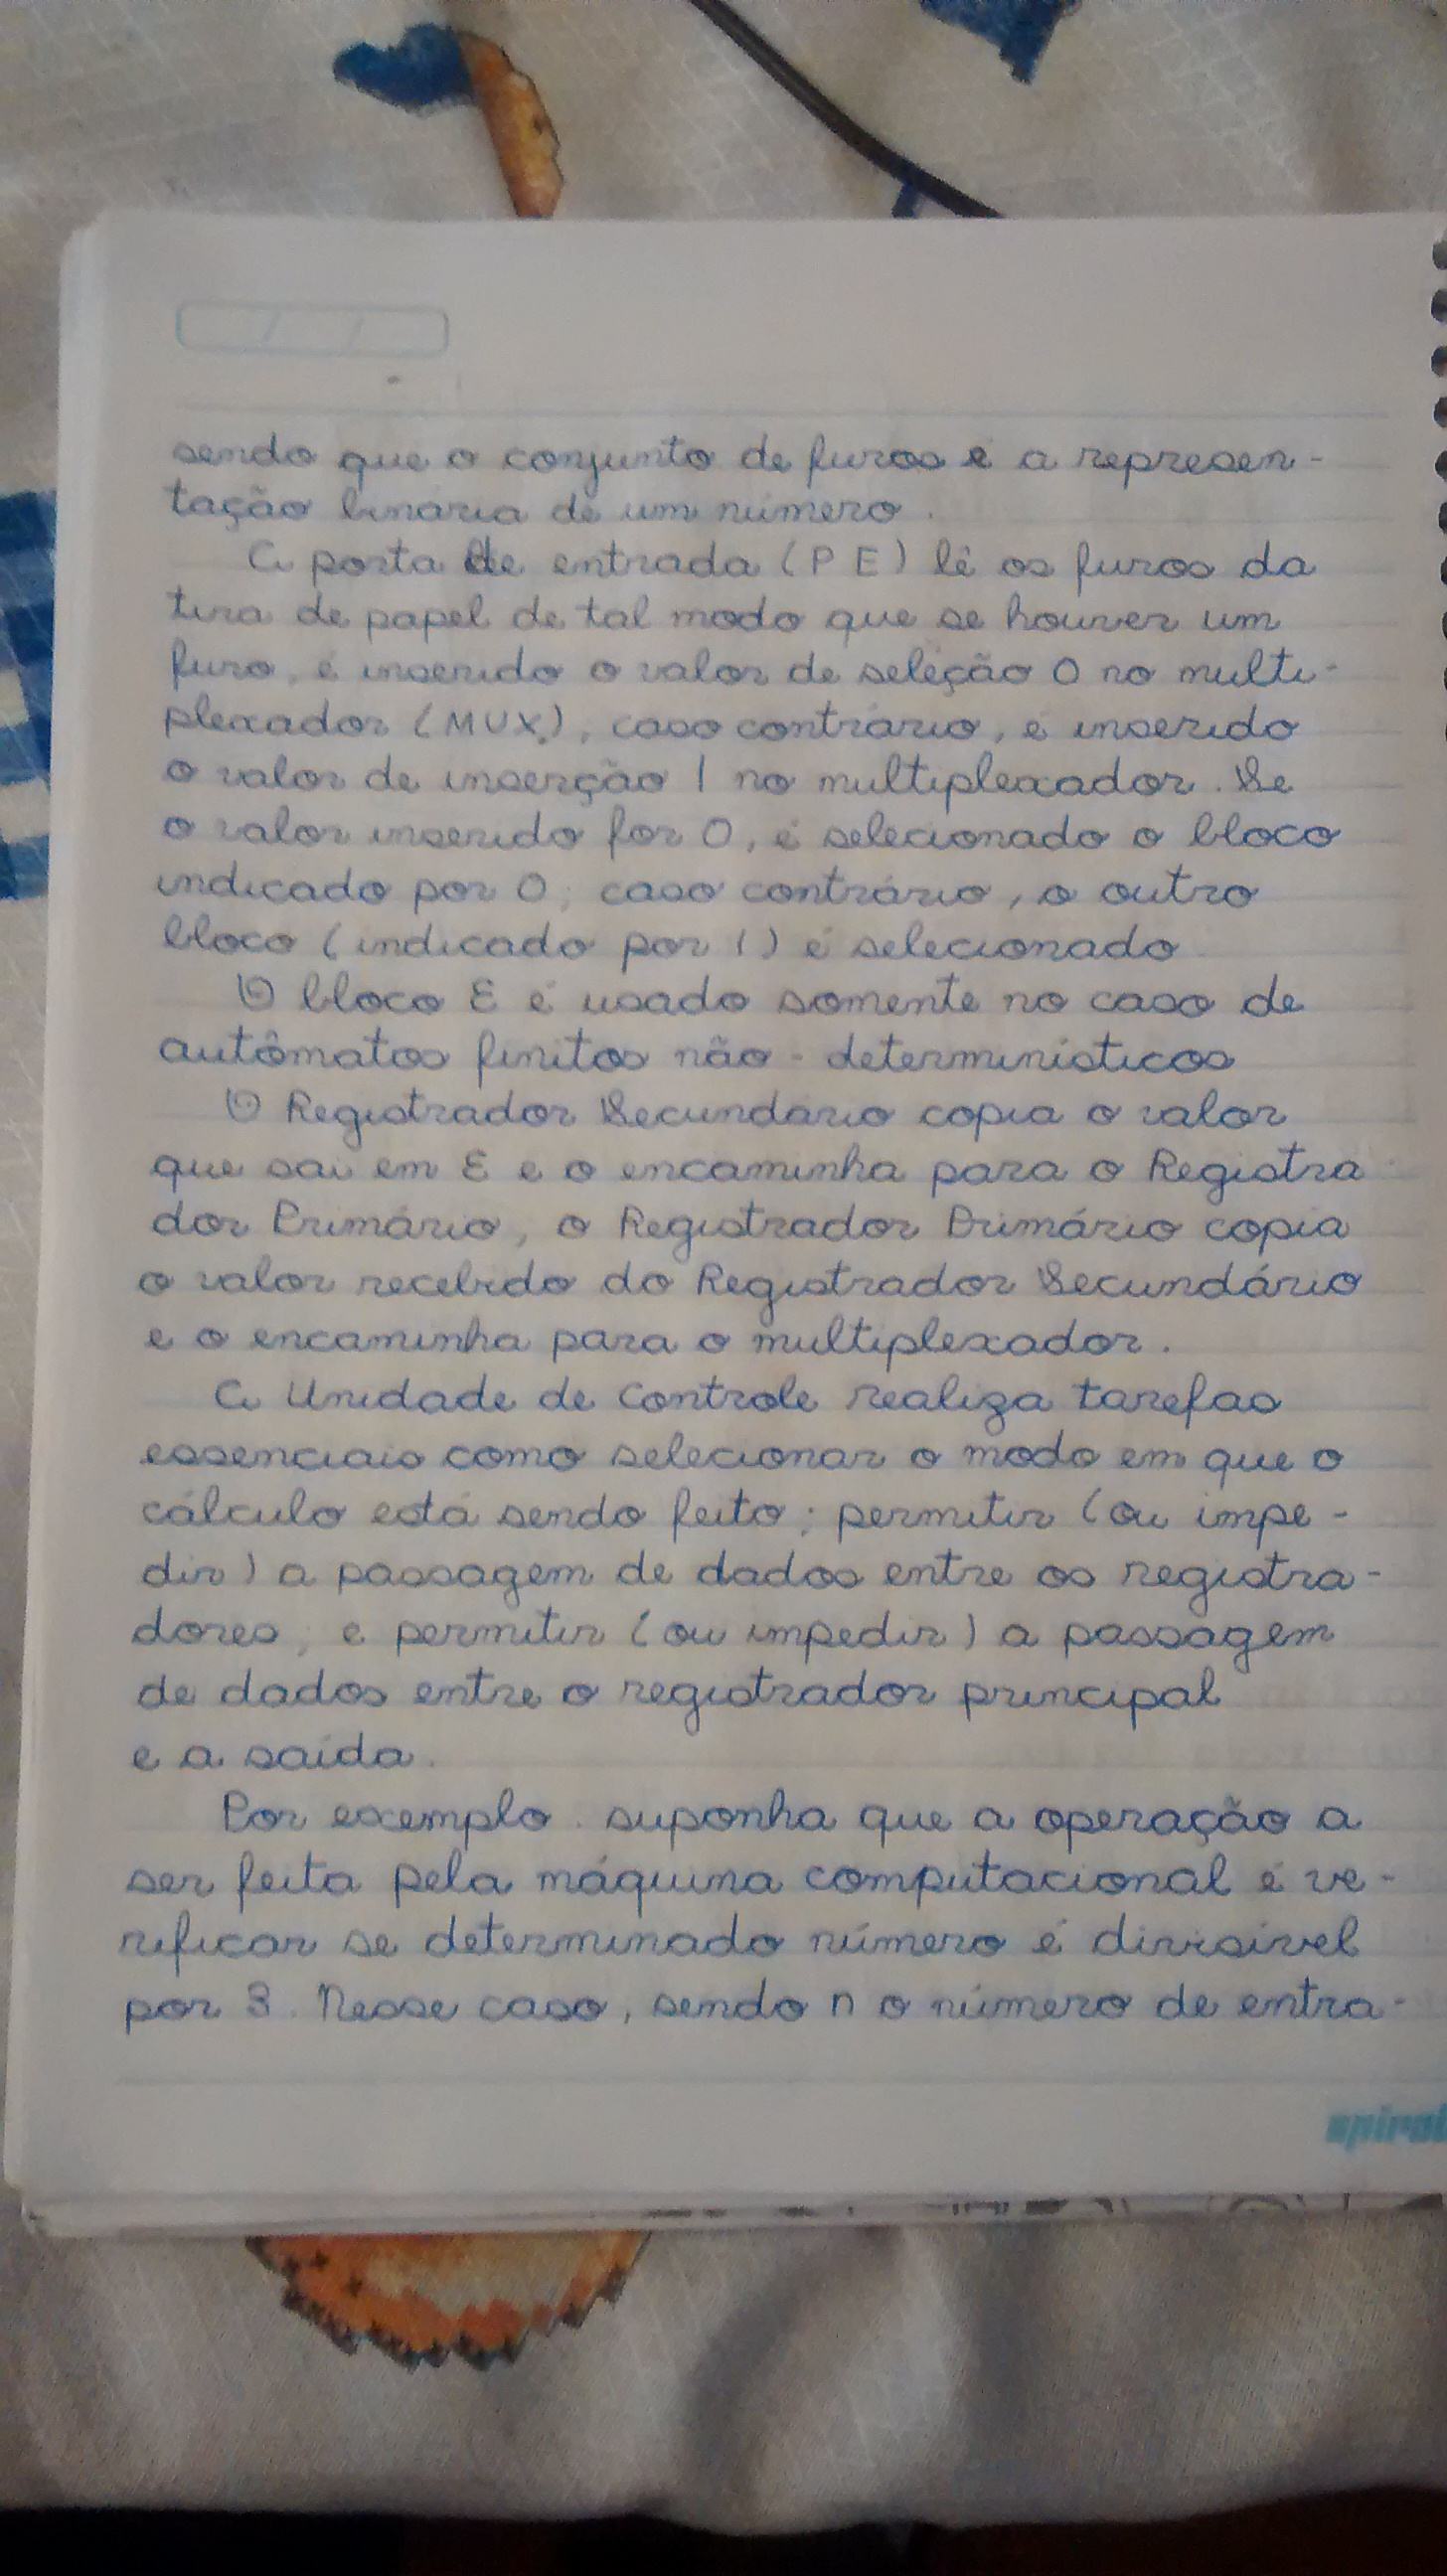 sendo que o conjunto de furos é a represen-
tação binária de um número.
A porta de entrada (PE) lê os furos da
tira de papel de tal modo que se houver um
furo, é inserido o valor de seleção 0 no multi-
plexador (MUX), caso contrário, é inserido
o valor de inserção 1 no multiplexador. Se
o valor inserido for 0, é selecionado o bloco
indicado por 0; caso contrário, o outro
bloco (indicado por 1) é selecionado
O bloco E é usado somente no caso de
autômatos finitos não-determinísticos
O Registrador Secundário copia o valor
que sai em E e o encaminha para o Registra
dor Primário, o Registrador Primário copia
o valor recebido do Registrador Secundário
e o encaminha para o multiplexador.
A Unidade de Controle realiza tarefas
essenciais como selecionar o modo em que o
cálculo está sendo feito; permitir (ou impe-
dir) a passagem de dados entre os registra-
dores; e permitir (ou impedir) a passagem
de dados entre o registrador principal
e a saída.
Por exemplo. suponha que a operação a
ser feita pela máquina computacional é ve-
rificar se determinado número é divisível
por 3. Nesse caso, sendo n o número de entra-
spiral